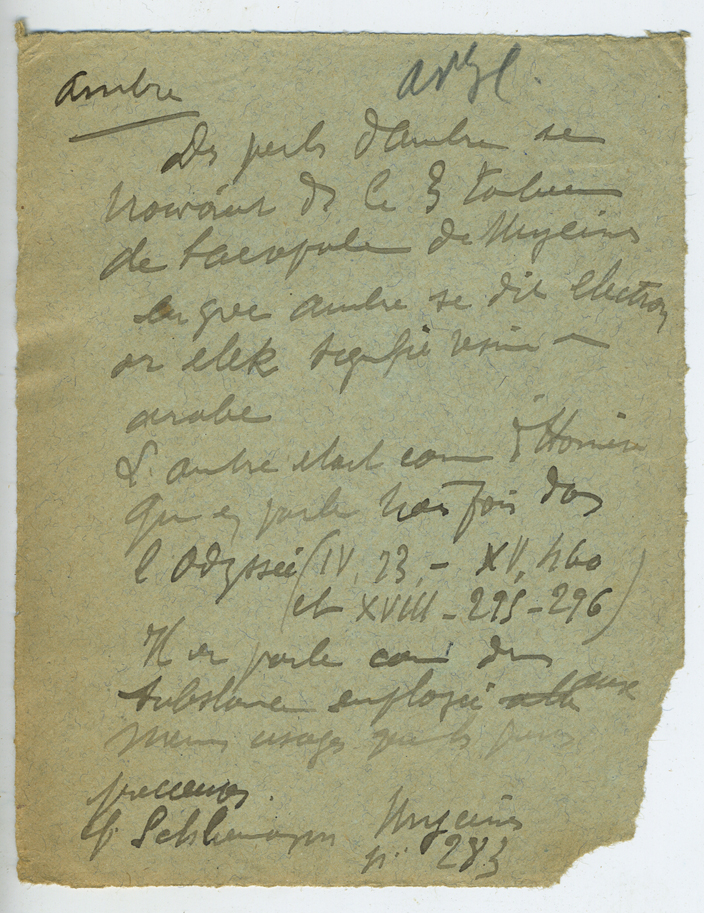 ambre
Des perles d'ambre se
trouvaient ds le 3 tombeau
de l'acropole de Mycènes
en grec ambre se dit electron
or elek signifie résine en
arabe
L'ambre etait connu d'Homère
qui en parle trois fois dans
l'Odyssée (IV, 73, - XV, 460
et XVIII - 295 - 296)
Il en parle comme d'une
substance employée aux
memes usages que les pierres
precieuses.
cf Schliemann Mycènes
p. 283